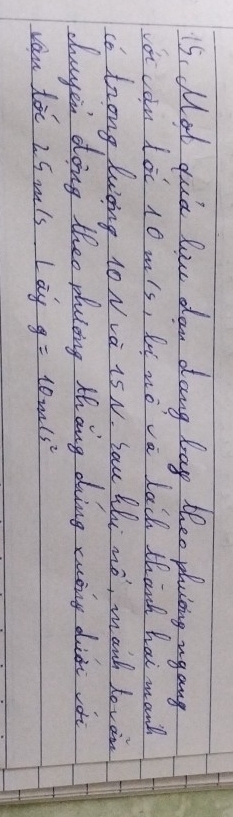 15. Một quả lựu đạn đang bay theo phương ngang
với vận tốc 10 m/s, bị nổ, và tách thành hai mảnh
có trọng lượng 10 N và 15 N. Sau khi nổ, mảnh to vẫn
chuyển động theo phương thẳng đứng xuống dưới với
vận tốc 25 m/s. Lấy g = 10 m/s²